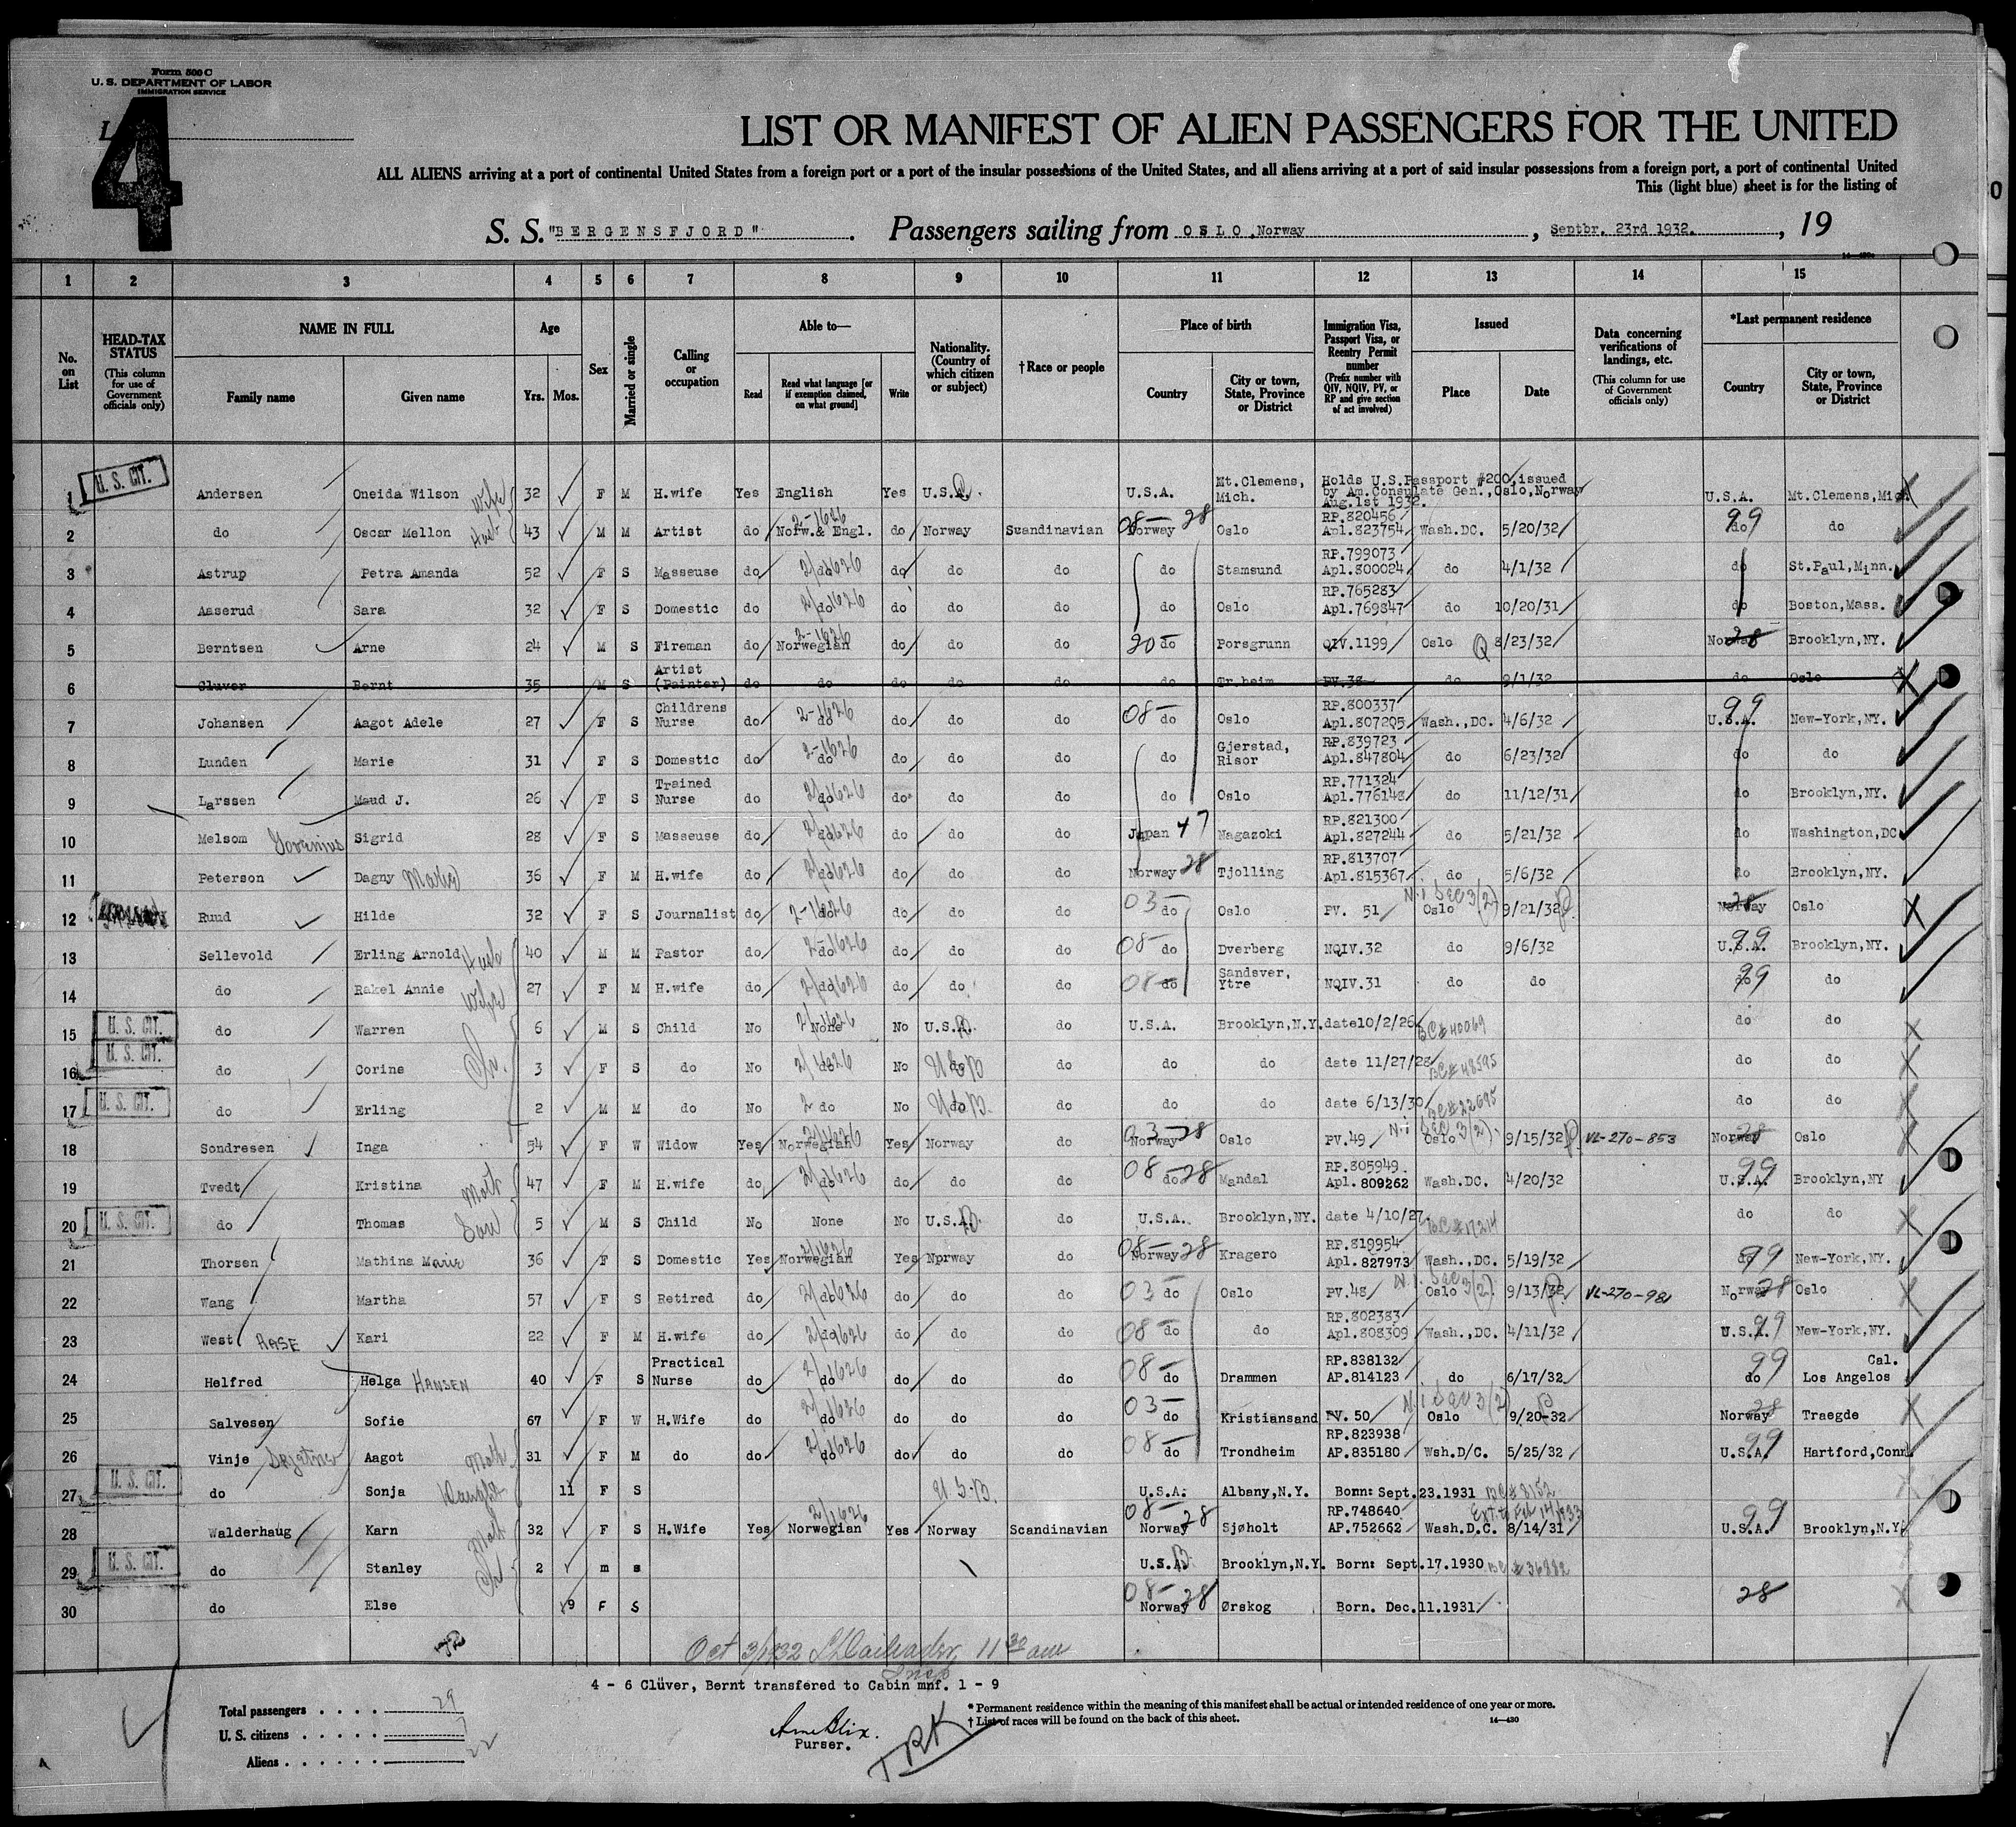 Form 500 C
U. S. DEPARTMENT OF LABOR
IMMIGRATION SERVICE
4
LIST OR MANIFEST OF ALIEN PASSENGERS FOR THE UNITED
ALL ALIENS arriving at a port of continental United States from a foreign port or a port of the insular possessions of the United States, and all aliens arriving at a port of said insular possessions from a foreign port, a port of continental United
This (light blue) sheet is for the listing of
S. S. "BERGENSFJORD" . Passengers sailing from OSLO, Norway , Septbr. 23rd 1932. , 19
14—430
1 2 3 4 5 6 7 8 9 10 11 12 13 14 15
No. on List
HEAD-TAX STATUS (This column for use of Government officials only)
NAME IN FULL
Family name Given name
Age
Yrs. Mos.
Sex
Married or single
Calling or occupation
Able to—
Read Read what language [or if exemption claimed, on what ground] Write
Nationality. (Country of which citizen or subject)
†Race or people
Place of birth
Country City or town, State, Province or District
Immigration Visa, Passport Visa, or Reentry Permit number (Prefix number with QIV, NQIV, PV, or RP and give section of act involved)
Issued
Place Date
Data concerning verifications of landings, etc. (This column for use of Government officials only)
*Last permanent residence
Country City or town, State, Province or District
1 U. S. CIT. Andersen Oneida Wilson Wife 32 F M H.wife Yes English Yes U.S.A. U.S.A. Mt.Clemens, Mich. Holds U.S.Passport #200,issued by Am.Consulate Gen.,Oslo,Norway Aug.1st 1932. U.S.A. Mt.Clemens,Mich
2 do Oscar Mellon Husb 43 M M Artist do Norw.& Engl. 2-1626 do Norway Scandinavian 08— Norway 28 Oslo RP.820456 Apl.823754 Wash.DC. 5/20/32 do 99 do
3 Astrup Petra Amanda 52 F S Masseuse do do do do do do Stamsund RP.799073 Apl.800024 do 4/1/32 do St.Paul,Minn.
4 Aaserud Sara 32 F S Domestic do do do do do do Oslo RP.765283 Apl.769847 do 10/20/31 do Boston,Mass.
5 Berntsen Arne 24 M S Fireman do Norwegian 2-1626 do do do 20— do Porsgrunn QIV.1199 Oslo Q 8/23/32 Norway 28 Brooklyn,NY.
6 Cluver Bernt 35 M S Artist (Painter) do do do do do do Tr.heim PV.38 do 9/1/32 do Oslo
7 Johansen Aagot Adele 27 F S Childrens Nurse do do 2-1626 do do do 08— do Oslo RP.800337 Apl.807205 Wash.,DC. 4/6/32 U.S.A. 99 New-York,NY.
8 Lunden Marie 31 F S Domestic do do 2-1626 do do do do Gjerstad, Risor RP.839723 Apl.847804 do 6/23/32 do do
9 Larssen Maud J. 26 F S Trained Nurse do do do do do do Oslo RP.771324 Apl.776148 do 11/12/31 do Brooklyn,NY.
10 Melsom Sigrid 28 F S Masseuse do do do do do Japan 47 Nagazoki RP.821300 Apl.827244 do 5/21/32 do Washington,DC
11 Peterson Dagny Marie 36 F M H.wife do do do do do Norway 28 Tjolling RP.813707 Apl.815367 do 5/6/32 do Brooklyn,NY.
12 Ruud Hilde 32 F S Journalist do do 2-1626 do do do 03— do Oslo PV. 51 N.i Sec 3(2) Oslo 9/21/32 Norway 28 Oslo
13 Sellevold Erling Arnold Husb 40 M M Pastor do do do do do 08— do Dverberg NQIV.32 do 9/6/32 U.S.A. 99 Brooklyn,NY.
14 do Rakel Annie Wife 27 F M H.wife do do do do do 08— do Sandsver, Ytre NQIV.31 do do do 99 do
15 U. S. CIT. do Warren 6 M S Child No None No U.S.A. do U.S.A. Brooklyn,N.Y. date10/2/26 BC# 40069 do do
16 U. S. CIT. do Corine Ch. 3 F S do No do No do USB do do do date 11/27/28 BC# 48595 do do
17 U. S. CIT. do Erling 2 M M do No do No do USB. do do do date 6/13/30 BC# 22695 do do
18 Sondresen Inga 54 F W Widow Yes Norwegian Yes Norway do 03— Norway 28 Oslo PV.49 N.i Sec 3(2). Oslo 9/15/32 VL-270-853 Norway 28 Oslo
19 Tvedt Kristina Moth 47 F M H.wife do do do do do 08— do 28 Mandal RP.805949 Apl.809262 Wash.DC. 4/20/32 U.S.A. 99 Brooklyn,NY
20 U. S. CIT. do Thomas Son 5 M S Child No None No U.S.A. do U.S.A. Brooklyn,NY. date 4/10/27 BC# 17214 do do
21 Thorsen Mathina Marie 36 F S Domestic Yes Norwegian Yes Norway do 08— Norway 28 Kragero RP.819954 Apl.827973 Wash.,DC. 5/19/32 do 99 New-York,NY.
22 Wang Martha 57 F S Retired do do do do do 03— do Oslo PV.48 N.i. Sec 3(2). Oslo 9/13/32 VL-270-981 Norway 28 Oslo
23 West AASE Kari 22 F M H.wife do do do do do 08— do do RP.802383 Apl.808309 Wash.,DC. 4/11/32 U.S.A. 99 New-York,NY.
24 Helfred Helga HANSEN 40 F S Practical Nurse do do do do do 08— do Drammen RP.838132 AP.814123 do 6/17/32 do 99 Cal. Los Angelos
25 Salvesen Sofie 67 F W H.Wife do do do do do 03— do Kristiansand PV. 50 N.i Sec 3(2) Oslo 9/20-32 Norway 28 Traegde
26 Vinje Aagot Moth 31 F M do do do do do do 08— do Trondheim RP.823938 AP.835180 Wsh.D/C. 5/25/32 U.S.A. 99 Hartford,Conn
27 U. S. CIT. do Sonja Daught 11 F S U.S.B. U.S.A. Albany,N.Y. Born: Sept.23.1931 BC# 3152
28 Walderhaug Karn Moth 32 F S H.Wife Yes Norwegian Yes Norway Scandinavian 08— Norway 28 Sjøholt RP.748640 AP.752662 Wash.D.C. 8/14/31 Ext. to Feb 14/1933 U.S.A. 99 Brooklyn,N.Y.
29 U. S. CIT. do Stanley Ch 2 m s U.S.A. Brooklyn,N.Y. Born: Sept.17.1930 BC# 36882
30 do Else 9 F S 08— Norway 28 Ørskog Born. Dec.11.1931 28
Oct 3/1932 11 30 am
Insp
4 - 6 Clüver, Bernt transfered to Cabin mnf. 1 - 9
Total passengers . . . . . 29
U. S. citizens . . . . . 7
Aliens . . . . . . 22
Arne Blix.
Purser.
TRK
* Permanent residence within the meaning of this manifest shall be actual or intended residence of one year or more.
† List of races will be found on the back of this sheet.
14—430